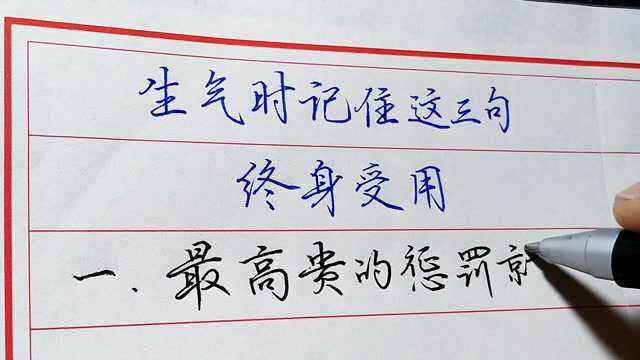 生气时记住这三句
终身受用
一.最高贵的惩罚